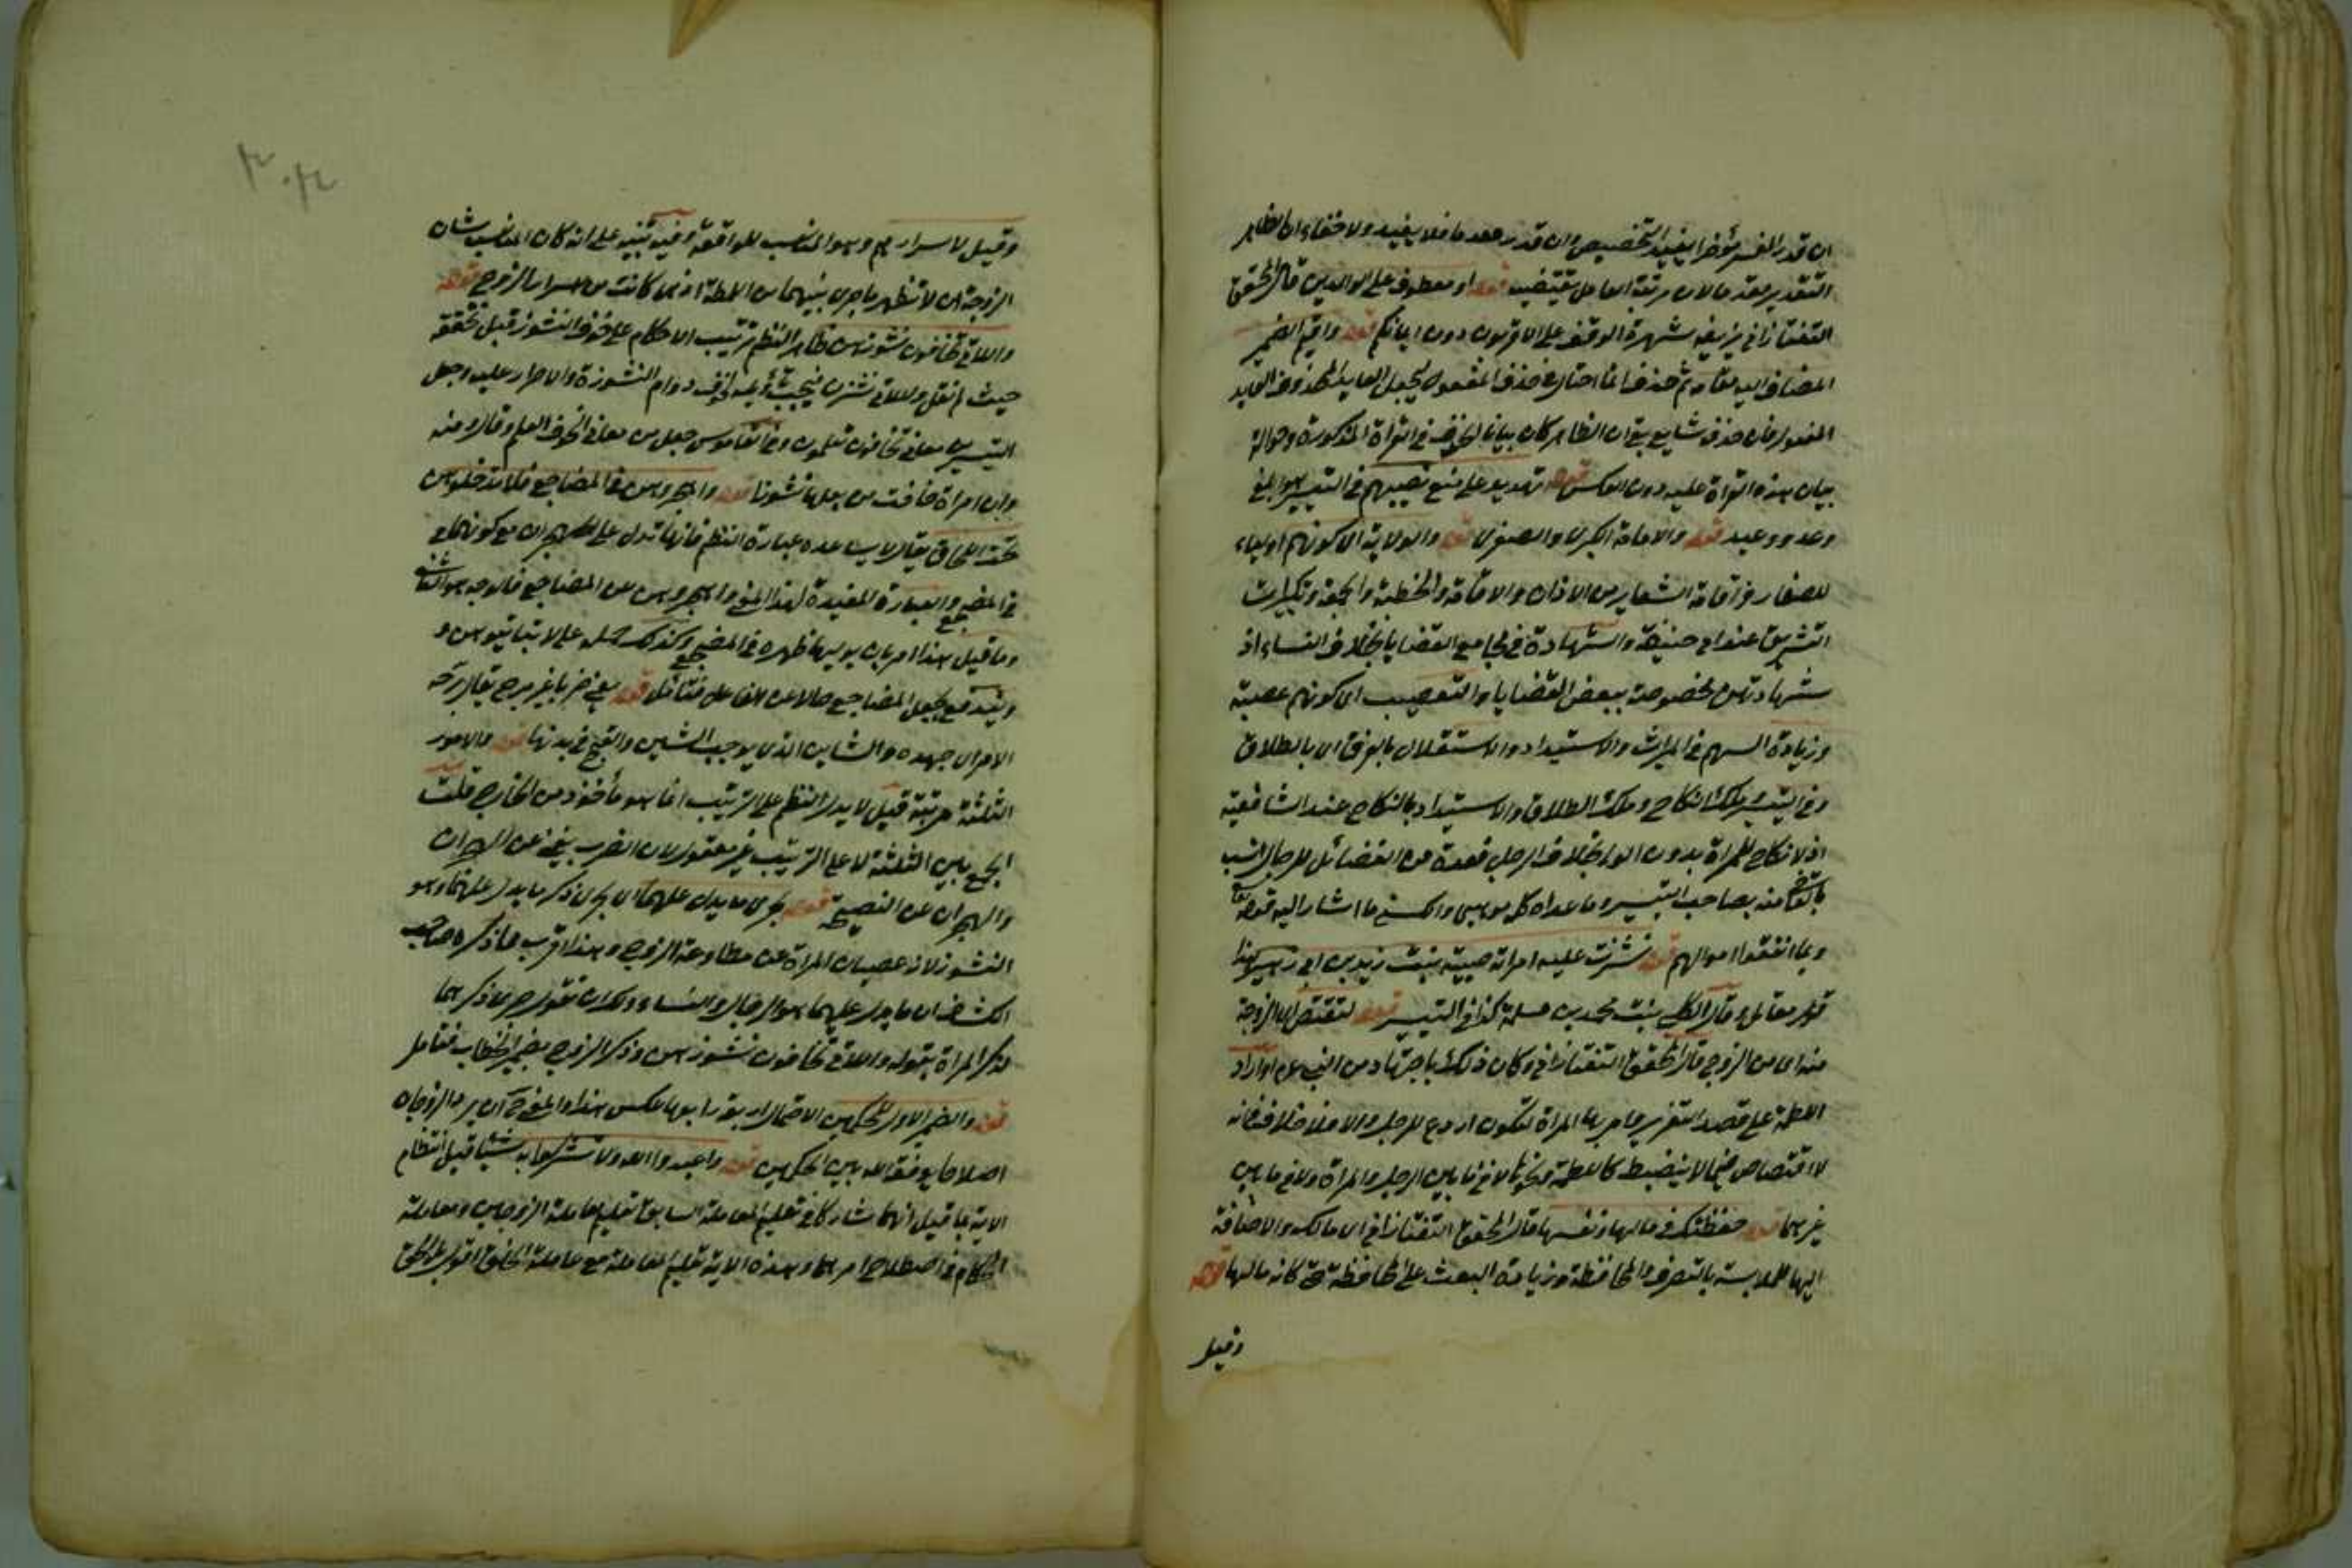 ان قدر المفسر مؤخرا يفيد التخصيص وان قدر مقدما فلا يفيد ولا خفاء ان الظاهر
التقدير مقدما لان مرتبة العامل يقتضيه قوله او معطوف على الوالدين قال المحقق
التفتازاني يزيفه شهرة الوقف على الاقربون دون ايمانكم قوله واقيم الضمير
المضاف اليه مقامه ثم حذف انما اختار حذف المفعول ليجعل العايد المحذوف العايد
المفعول فان حذف شايع بقى ان الظاهر كان بيانا لحذف في القراة المذكورة وحوالة
بيان هذه القراة عليه دون العكس قوله تهديد على منع نصيبهم في التيسير هو ابلغ
وعد ووعيد قوله والامامة الكبرى والصغرى قوله والولاية اى كونهم اولياء
للصغار واقامة الشعاير من الاذان والاقامة والخطبة والجمعة وتكبيرات
التشريق عند ابى حنيفة والشهادة في مجامع القضايا بخلاف النساء اذ
شهادتهن مخصوصة ببعض القضايا والتعصيب اى كونهم عصبة
وزيادة السهم في الميراث والاستبداد والاستقلال بالفراق اى بالطلاق
وفي التيسير وملك النكاح وملك الطلاق والاستبداد بالنكاح عند الشافعية
اذ لا نكاح للمراة بدون الولى بخلاف الرجل فعده من الفضائل للرجال انسب
منه بصاحب التيسير وما عداه كله موهبى والكسبى ما اشار اليه قوله
وبما انفقوا اموالهم قوله نشزت عليه امراته حبيبة بنت زيد بن ابى زهير هذا
قول مقاتل وقال الكلبى بنت محمد بن مسلمة كذا في التيسير قوله لتقتص اى الزوجة
منه اى من الزوج قال المحقق التفتازاني وكان ذلك باجتهاد من النبى عم او اراد
اللطمة على قصد التعزير وامر بها المراة لتكون اردع للرجل والا فلا خلاف في انه
لا اقتصاص فيما لا ينضبط كاللطمة ونحوها لا فيما بين الرجل والمراة ولا فيما بين
غيرهما قوله حفظتك في مالها ونفسها قال المحقق التفتازاني اى مالك والاضافة
اليها للملابسة بالتصرف والمحافظة وزيادة البعث على المحافظة حتى كانه مالها قوله
وقيل
وقيل لاسرارهم وهو المناسب للواقعة وفيه تنبيه على انه كان المناسب بشان
الزوجة ان لا تظهر ما جرى بينهما من اللطمة اذ هى كانت من اسرار الزوج قوله
واللاتى تخافون نشوزهن ظاهر النظم ترتيب الاحكام على خوف النشوز قبل تحققه
حيث لم يقل واللاتى نشزن فيجب تأويله بخوف دوام النشوزة والاصرار عليه وجعل
التيسير معانى تخافون تعلمون وفي القاموس جعل من معانى الخوف العلم وقال ومنه
وان امراة خافت من بعلها نشوزا قوله واهجروهن في المضاجع فلا تدخلوهن
تحت اللحاف يقال لا يساعده عبارة النظم فانها تدل على الهجران مع كونهما
في المضجع والعبارة المفيدة لهذا المعنى واهجروهن عن المضاجع فالوجه هو الثانى
وما قيل هذا امر بان يوليها ظهره في المضجع وكذلك حمله على لا تباتوهن و
ويندفع بجعل المضاجع حالا عن الفاعل فتأمل قوله يعنى ضربا غير مبرح يقال برحه
الامر اى جهده والشاين الذى يوجب الشين والقبح في بدنها قوله والامور
الثلثة مرتبة قيل لا يدل النظم على الترتيب انما هو مأخوذ من الخارج قلت
الجمع بين الثلثة لا على الترتيب غير معقول لان الضرب يغنى عن الهجران
والهجران عن النصيحة قوله جرى ما يدل عليهما اى جرى ذكر ما يدل عليهما وهو
النشوز لانه عصيان المراة عن مطاوعة الزوج وهذا اقرب مما ذكره صاحب
الكشاف ان ما يدل عليهما هو الرجال والنساء ولك ان تقول جرى ذكرهما
لذكر المراة بقوله واللاتى تخافون نشوزهن وذكر الزوج بضمير الخطاب فتأمل
قوله والضمير الاول للحكمين الاحتمال اربعة رابعها عكس هذا والمعنى ح ان يرد الزوجان
اصلاحا يوفق الله بين الحكمين قوله واعبدوا الله ولا تشركوا به شيئا قيل انتظام
الاية بما قيل انهما تشاركا في تعليم المعاملة السابق تعليم معاملة الزوجين ومعاملة
الحكام في اصطلاح امرهما وهذه الاية تعليم المعاملة مع معاملة الخلق